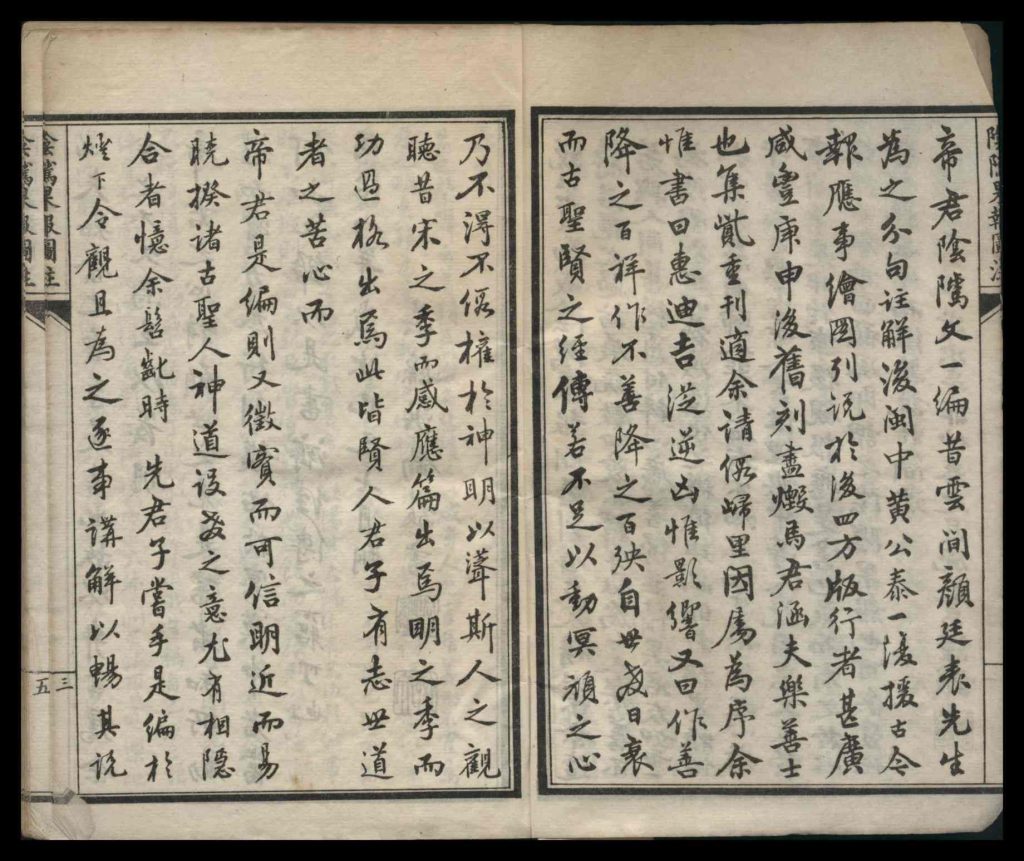 帝君陰隲文一編昔雲間顏廷表先生
為之分句註解後閩中黃公泰一復援古今
報應事繪圖列說於後四方版行者甚廣
咸豐庚申後舊刻盡燬馬君涵夫樂善士
也集貲重刊適余請假歸里因屬為序余
惟書曰惠迪吉從逆凶惟影響又曰作善
降之百祥作不善降之百殃自世教日衰
而古聖賢之經傳若不足以動冥頑之心
乃不得不假權於神明以聳斯人之觀
聽昔宋之季而感應篇出焉明之季而
功過格出焉此皆賢人君子有志世道
者之苦心而
帝君是編則又徵實而可信明近而易
曉揆諸古聖人神道設教之意尤有相隱
合者憶余髫齔時 先君子嘗手是編於
燈下令觀且為之逐事講解以暢其說
陰隲果報圖註
三
五